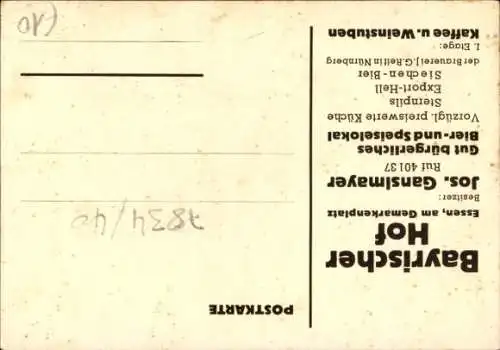 Bayrischer
Hof
Essen, am Gemarkenplatz
Besitzer:
Jos. Ganslmayer
Ruf 40137
Gut bürgerliches
Bier- und Speiselokal
Vorzügl. preiswerte Küche
Sternpils
Export-Hell
Siechen-Bier
der Brauerei J.G. Reif in Nürnberg
1. Etage:
Kaffee u. Weinstuben
POSTKARTE
7834/40
(10)